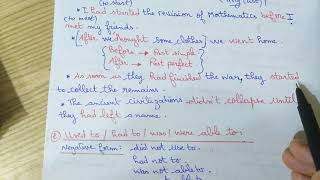 (to start)
• I had started the revision of Mathematics before I
(to meet)
met my friends.
• After we bought some clothes, we went home.
Before → Past simple
After → Past perfect
• As soon as they had finished the war, they started
to collect the remains.
• The ancient civilizations didn't collapse until
they had left a name.
② Used to / had to / was / were able to:
Negative form: did not use to.
had not to.
was not able to.